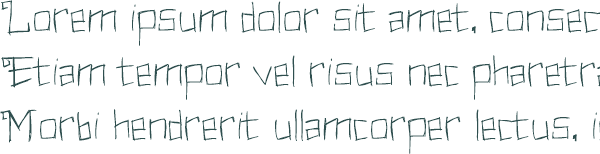 Lorem ipsum dolor sit amet, consec
Etiam tempor vel risus nec pharetra
Morbi hendrerit ullamcorper lectus, i